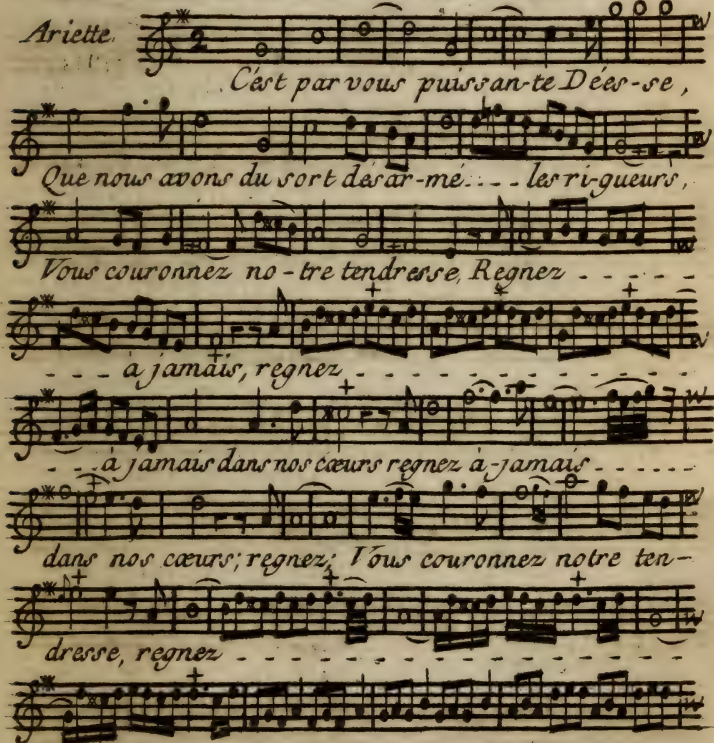 Ariette.
2
C'est par vous puissan-te Dées-se,
Que nous avons du sort désar-mé.... les ri-gueurs,
Vous couronnez no-tre tendresse, Regnez - - - - -
- - - à jamais, regnez - - - - - - - - - - -
- - . . à jamais dans nos cœurs regnez à-jamais - - - - -
dans nos cœurs; regnez; Vous couronnez notre ten-
dresse, regnez - - - - - - - - - - - - - -